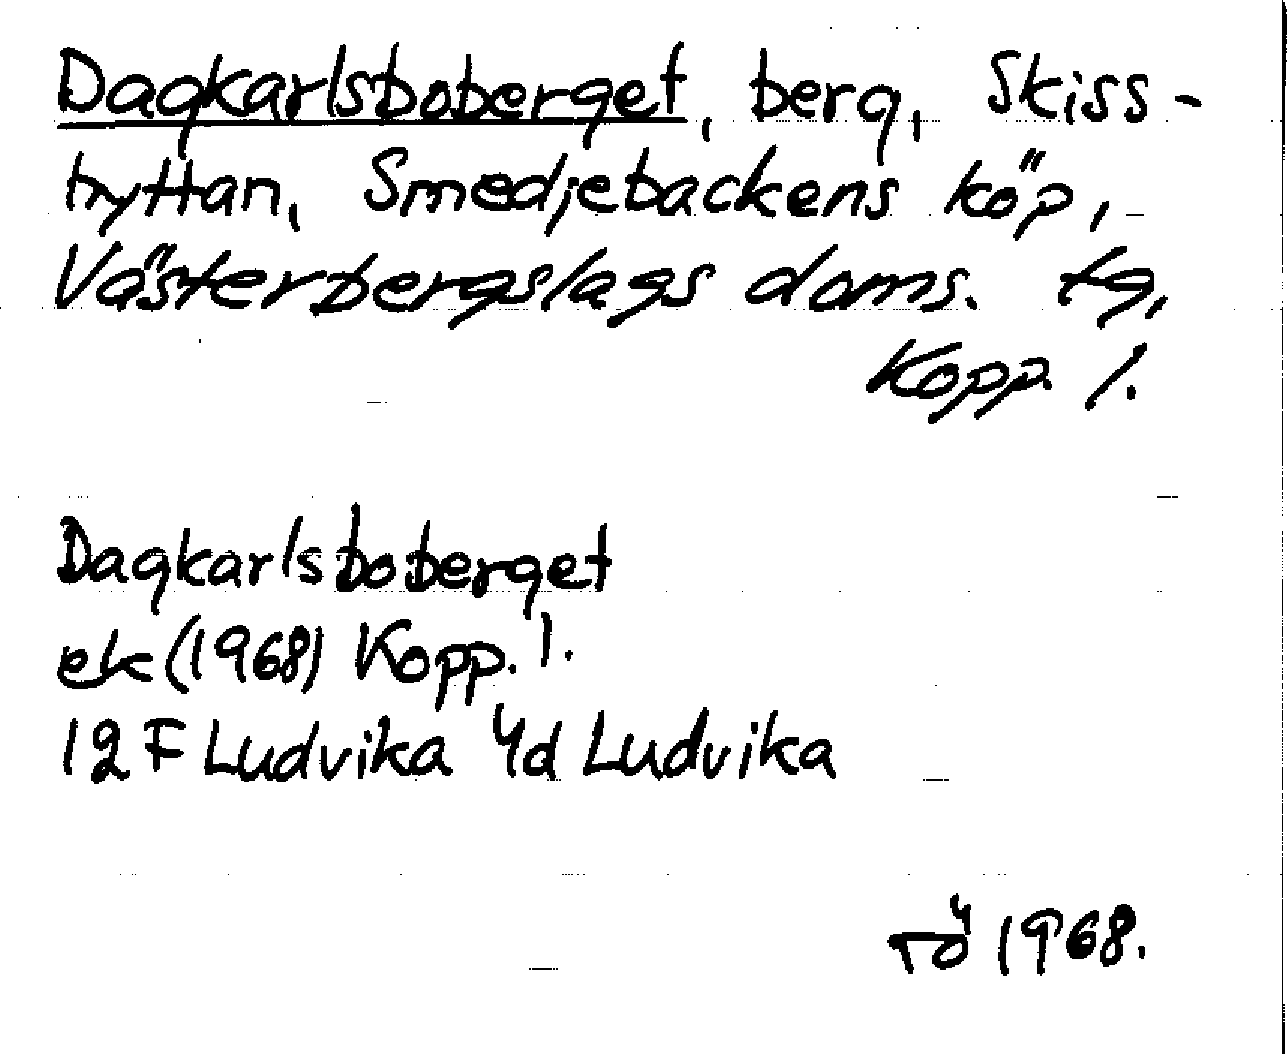 Dagkarlsboberget, berg, Skiss-
hyttan, Smedjebackens köp,
Västerbergslags doms. tg,
Kopp. l.
Dagkarlsboberget
ek (1968) Kopp. l.
12 F Ludvika 4d Ludvika
TÖ 1968.